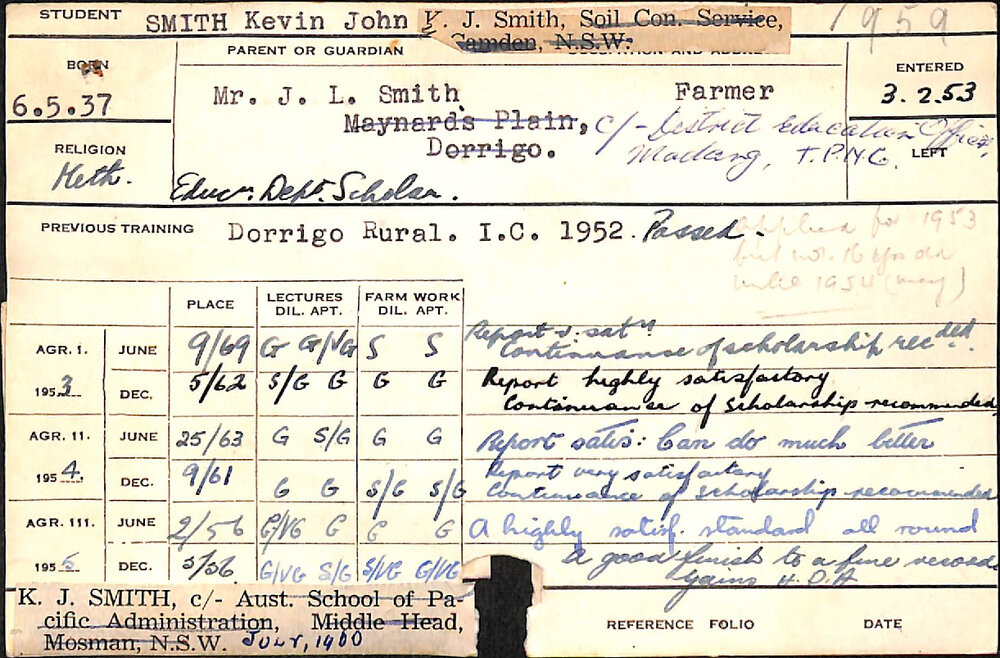 STUDENT SMITH Kevin John K. J. Smith, Soil Con. Service, 1959
Camden, N.S.W.
PARENT OR GUARDIAN
BORN ENTERED
6.5.37 Mr. J. L. Smith Farmer 3.2.53
Maynards Plain, c/- District Education Office,
RELIGION Dorrigo. Madang, T.P.N.G. LEFT
Meth. Educn. Dept. Scholar.
PREVIOUS TRAINING Dorrigo Rural. I.C. 1952. Passed. Applied for 1953
but not 16 yrs old
until 1954 (may)
PLACE LECTURES FARM WORK
DIL. APT. DIL. APT.
AGR. I. JUNE 9/69 G G/VG S S Report v. saty
Continuance of scholarship recded.
1953 DEC. 5/62 S/G G G G Report highly satisfactory
Continuance of Scholarship recommended
AGR. 11. JUNE 25/63 G S/G G G Report satis: Can do much better
1954. DEC. 9/61 G G S/G S/G Report very satisfactory
Continuance of Scholarship recommended
AGR. 111. JUNE 2/56 G/VG G G G A highly satisf. standard all round
1955 DEC. 5/56 G/VG S/G S/VG G/VG A good finish to a fine record
Gains H.D.A
K. J. SMITH, c/- Aust. School of Pa-
cific Administration, Middle Head,
Mosman, N.S.W. JULY, 1960
REFERENCE FOLIO DATE